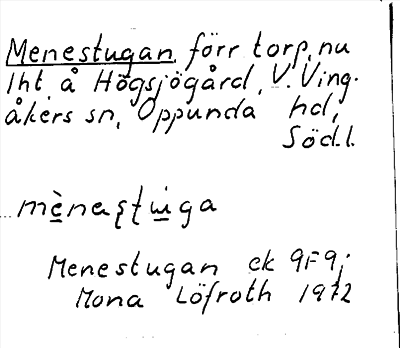 Menestugan, förr torp, nu
lht å Högsjögård, V. Ving-
åkers sn, Oppunda hd,
Södl.
mènastùga
Menestugan ek 9F9j
Mona Löfroth 1972